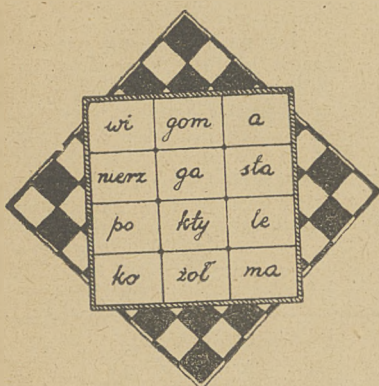 wi gom a
nierz ga sła
po kły le
ko żoł ma